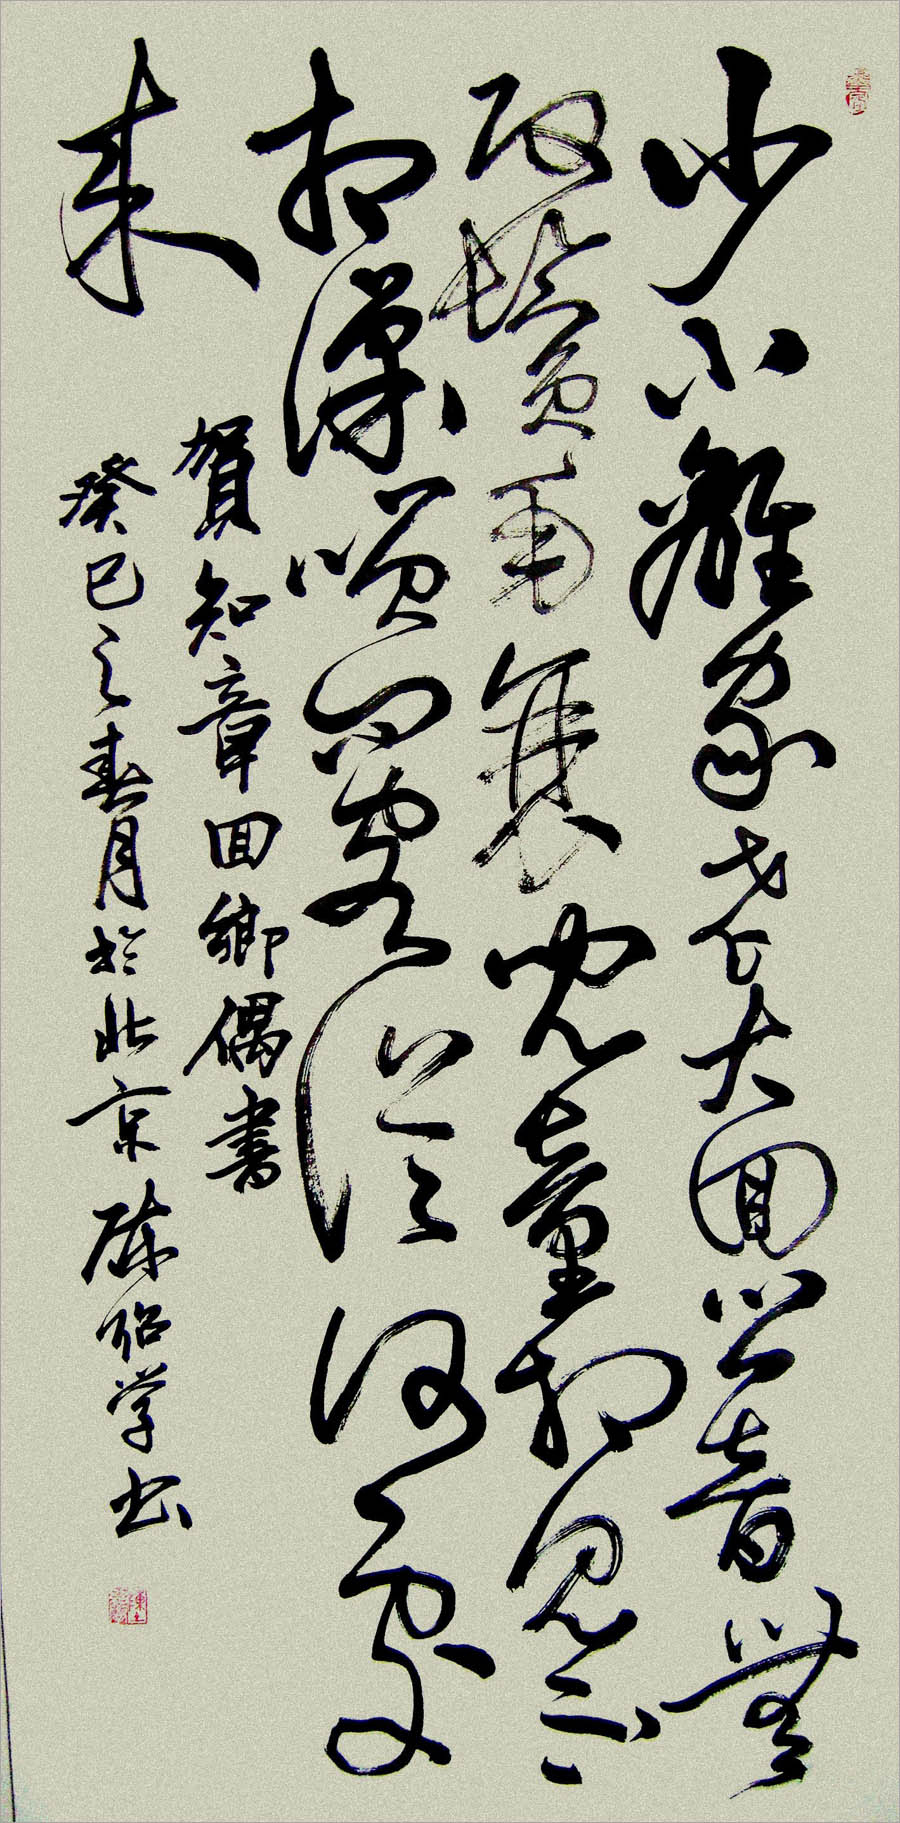 少小離家老大回鄉音無
改鬢毛衰兒童相見不
相識笑問客從何處
来
賀知章回鄉偶書
癸巳之春月於北京陳紹学书